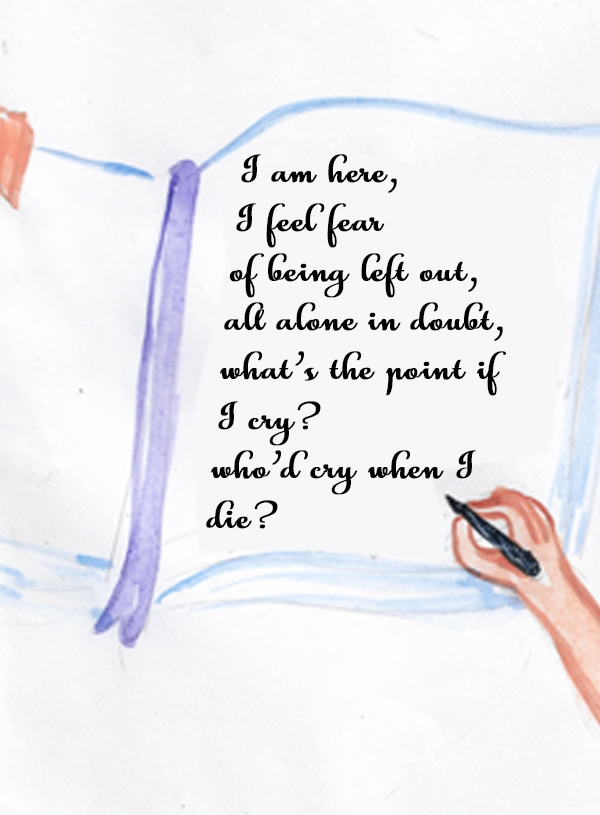 I am here,
I feel fear
of being left out,
all alone in doubt,
what's the point if
I cry?
who'd cry when I
die?